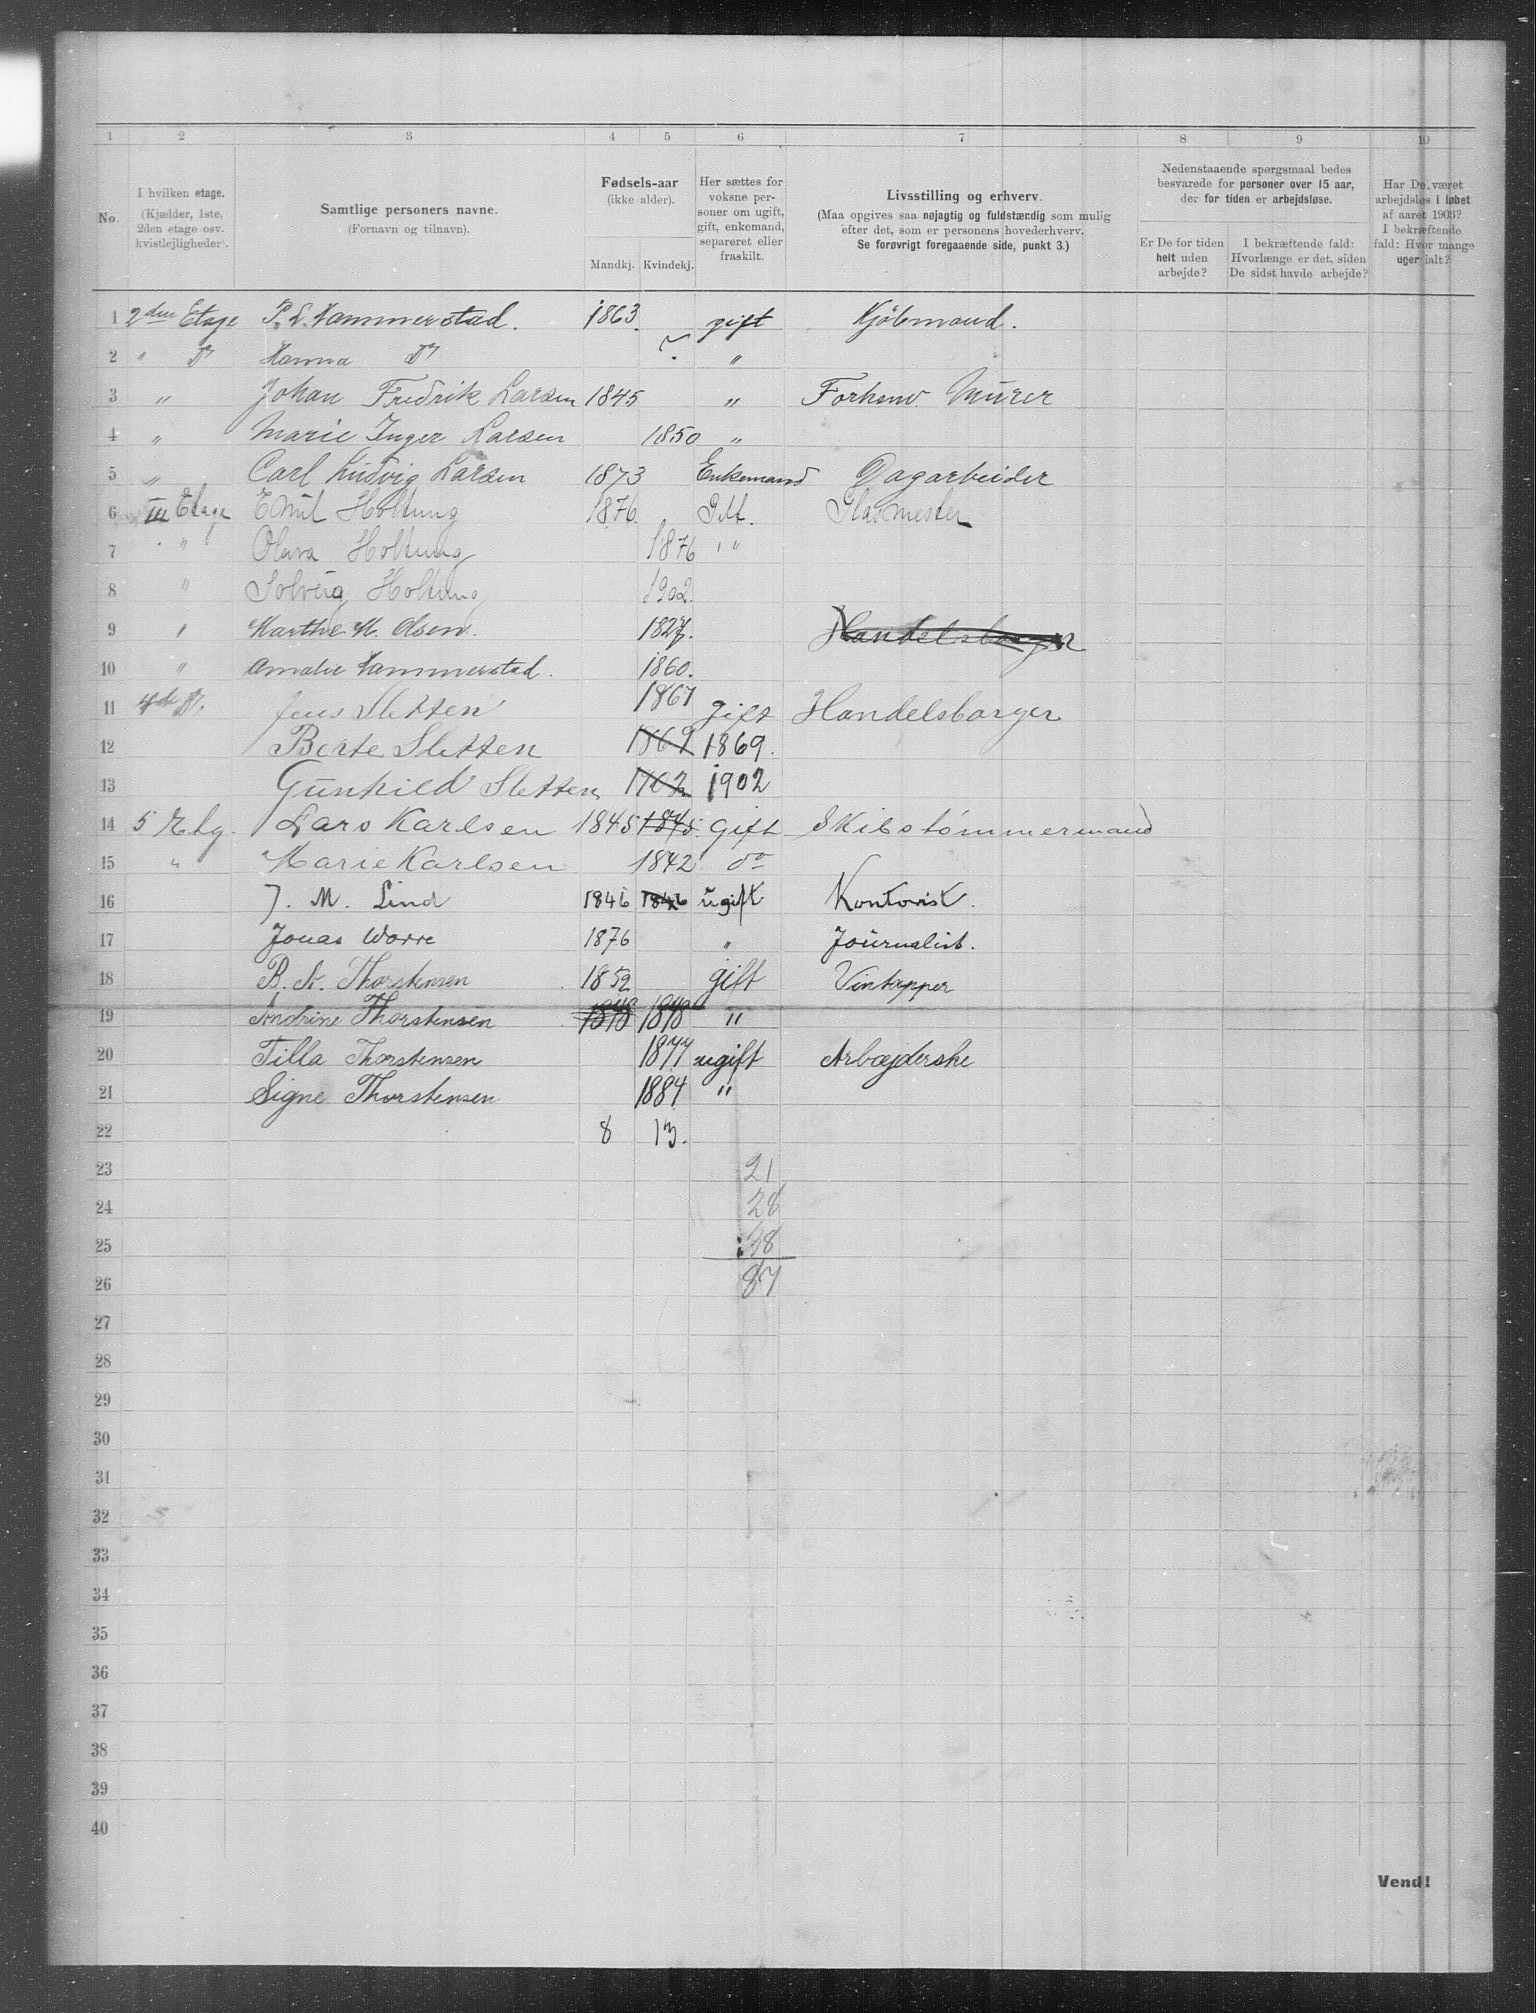 1 2 3 4 5 6 7 8 9 10
No.
I hvilken etage.
(Kjælder, 1ste,
2den etage osv.
kvistlejligheder).
Samtlige personers navne.
(Fornavn og tilnavn).
Fødsels-aar
(ikke alder).
Mandkj. Kvindekj.
Her sættes for
voksne per-
soner om ugift,
gift, enkemand,
separeret eller
fraskilt.
Livsstilling og erhverv.
(Maa opgives saa nøjagtig og fuldstændig som mulig
efter det, som er personens hovederhverv.
Se forøvrigt foregaaende side, punkt 3.)
Nedenstaaende spørgsmaal bedes
besvarede for personer over 15 aar,
der for tiden er arbejdsløse.
Er De for tiden
helt uden
arbejde?
I bekræftende fald:
Hvorlænge er det, siden
De sidst havde arbejde?
Har De været
arbejdsløs i løbet
af aaret 1903?
I bekræftende
fald: Hvor mange
uger ialt?
1 2den Etage P. L. Hammerstad. 1863. gift Kjöbmand.
2 " Do Hanna Do ? "
3 " Johan Fredrik Larsen 1845 " Forhenv. Murer
4 " Marie Inger Larsen 1850 "
5 " Carl Ludvig Larsen 1873 Enkemand Dagarbeider
6 III Etage Emil Holtung 1876. Gift. Glasmester
7 " Olava Holtung 1876 "
8 " Solveig Holtung 1902.
9 " Marthe M. Olsen. 1827. Handelsborger
10 " Amalie Hammerstad. 1860.
11 4de Do. Jens Sletten 1867 gift Handelsborger
12 Berte Sletten 1869 1869.
13 Gunhild Sletten 1902 1902
14 5 Etg. Lars Karlsen 1845 1845 gift Skibstømmermand
15 " Marie Karlsen 1842 do
16 J. M. Lind 1846 1846 ugift Kontorist.
17 Jonas Worre 1876 " Journalist.
18 B. A. Thorstensen 1852 gift Vintapper
19 Andrine Thorstensen 1848 "
20 Tilla Thorstensen 1877 ugift Arbejderske
21 Signe Thorstensen 1884 "
22 8 13.
23 21
24 28
25 38
26 87
27
28
29
30
31
32
33
34
35
36
37
38
39
40
Vend!